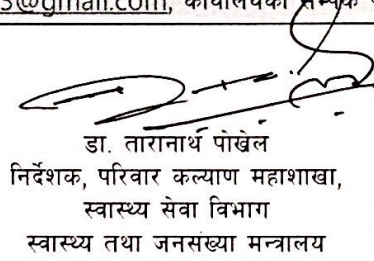 3@gmail.com, कार्यालयको सम्पर्क
डा. तारानाथ पोखेल
निर्देशक, परिवार कल्याण महाशाखा,
स्वास्थ्य सेवा विभाग
स्वास्थ्य तथा जनसंख्या मन्त्रालय